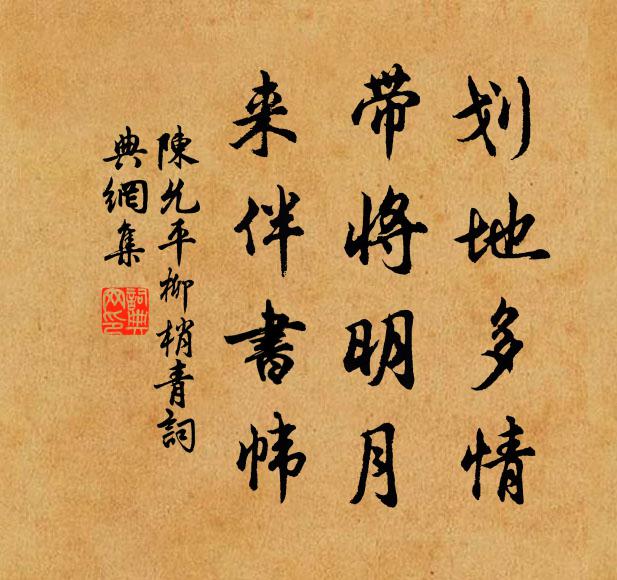 划地多情
带将明月
来伴書帏
陳允平柳梢青詞
典網集
詞典网印